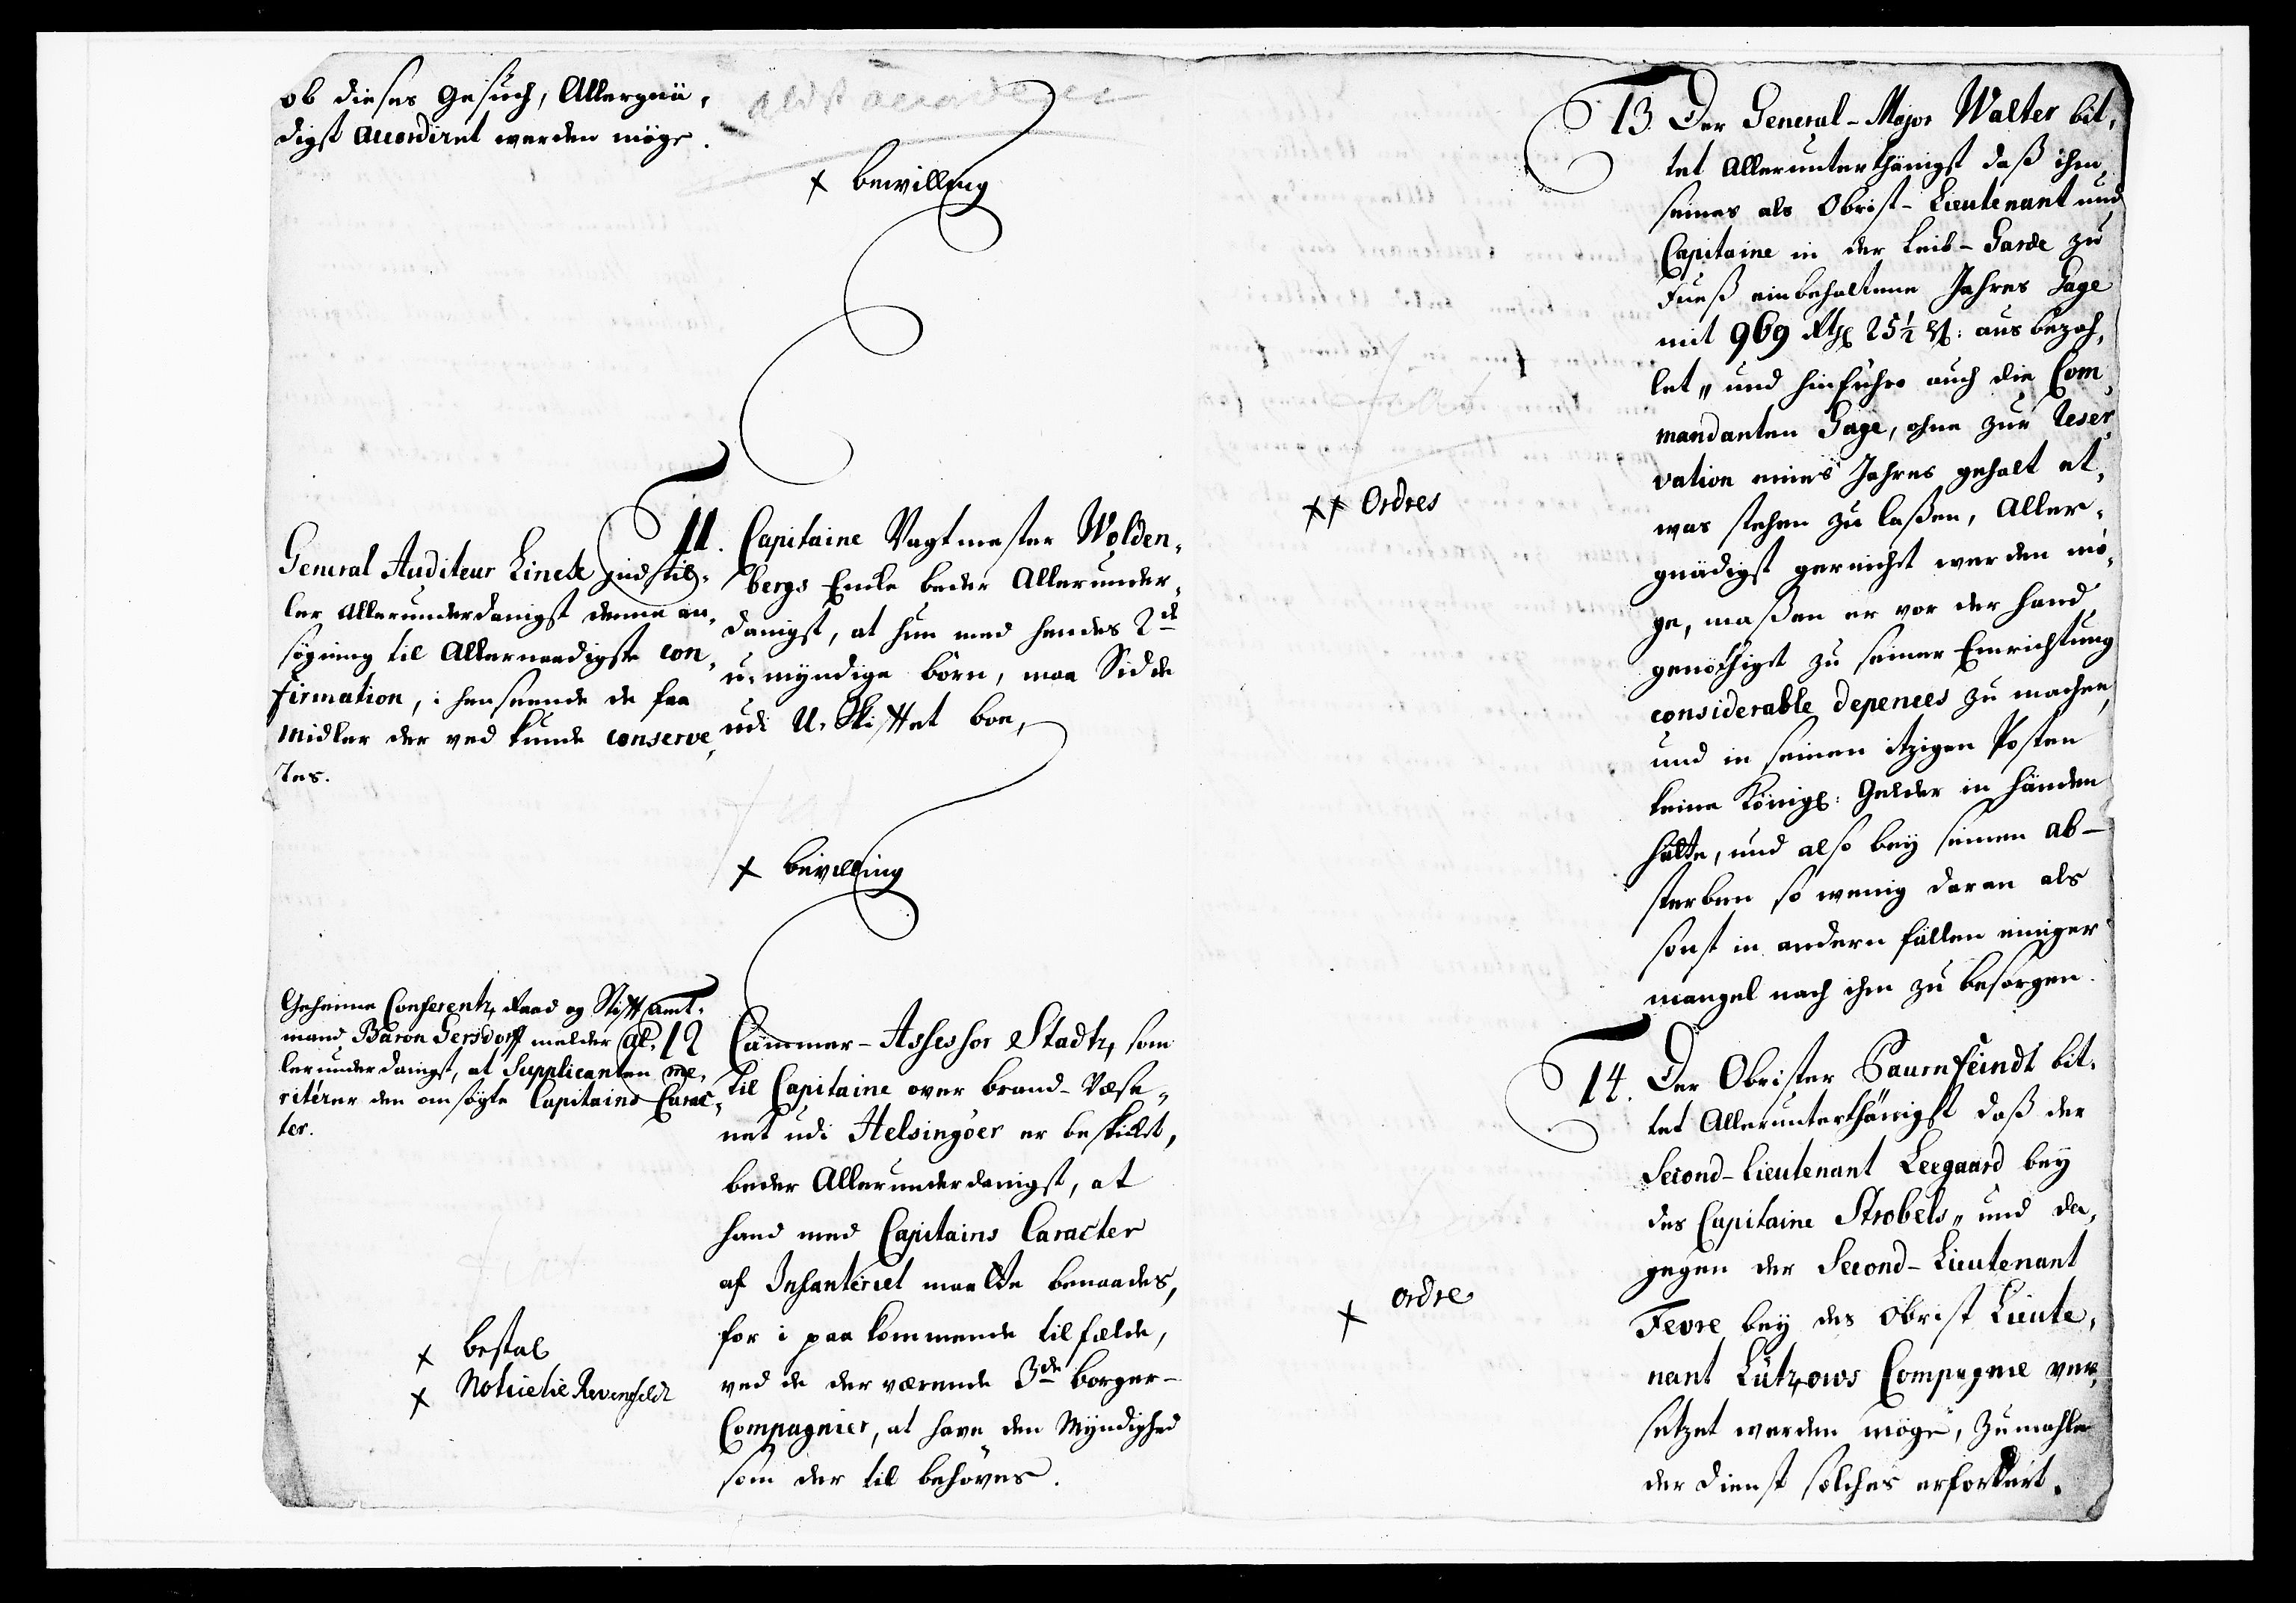 ob dieses Gesuch, Allergnä,
digst accordiret werden möge.
x bewilling
General Auditeur Linck indstil,
ler Allerunderdanigst denne an,
søgning til Allernaadigste con,
firmation, i henseende de faa
Midler der ved kunde conserve,
res.
11. Capitaine Vagtmester Wolden,
bergs Encke beder Allerunder,
danigst, at hun med hendes 2de
u-myndige børn, maa Sidde
udi U-Skifftet boe,
x bevilling
Geheime Conferentz Raad og Stifft Amt,
mand Baron Gersdorff melder Al,
lerunderdanigst, at Supplicanten me,
riterer den ansøgte Capitains Carac,
ter.
12
Cammer-Assessor Stadtz, som
til Capitaine over brand-Væse,
net udi Helsingöer er beskicket,
beder Allerunderdanigst, at
hand med Capitains Caracter
af Infanteriet maatte benaades,
for i paakommende tilfælde,
ved de der værende 3de borger-
Compagnier, at have den Myndighed
som der til behøves.
x bestal
x Noticetie Revengfeldt
13. Der General-Major Walter bit,
tet Allerunterthänigst daß ihm
seines als Obrist-Lieutenant und
Capitaine in der Leib-Garde zu
Fueß einbehaltene Jahres Gage
mit 969 Rthl 25½ ß: ausbezah,
let, und hinführo auch die Com,
mandanten Gage, ohne zur Reser,
vation eines Jahres gehalt et,
was stehen zu laßen, Aller,
gnädigst gereicht werden mö,
ge, maßen er vor der hand
genöthigt zu seiner Einrichtung
considerable depences zu machen,
und in seinen itzigen Posten
keine Königl: Gelder in händen
hätte, und also bey seinen ab-
sterben so wenig daran als
sonst in andern fällen einiger
mangel nach ihm zu besorgen.
xx Ordres
14. Der Obrister Paurnfeindt bit,
tet Allerunterthänigst daß der
Second-Lieutenant Leegaard bey
des Capitaine Strobels, und da,
gegen der Second-Lieutenant
Fevre bey des Obrist Lieute,
nant Lützows Compagnie ver,
setzet werden möge, Zumahlen
der dienst solches erfordert.
x ordre